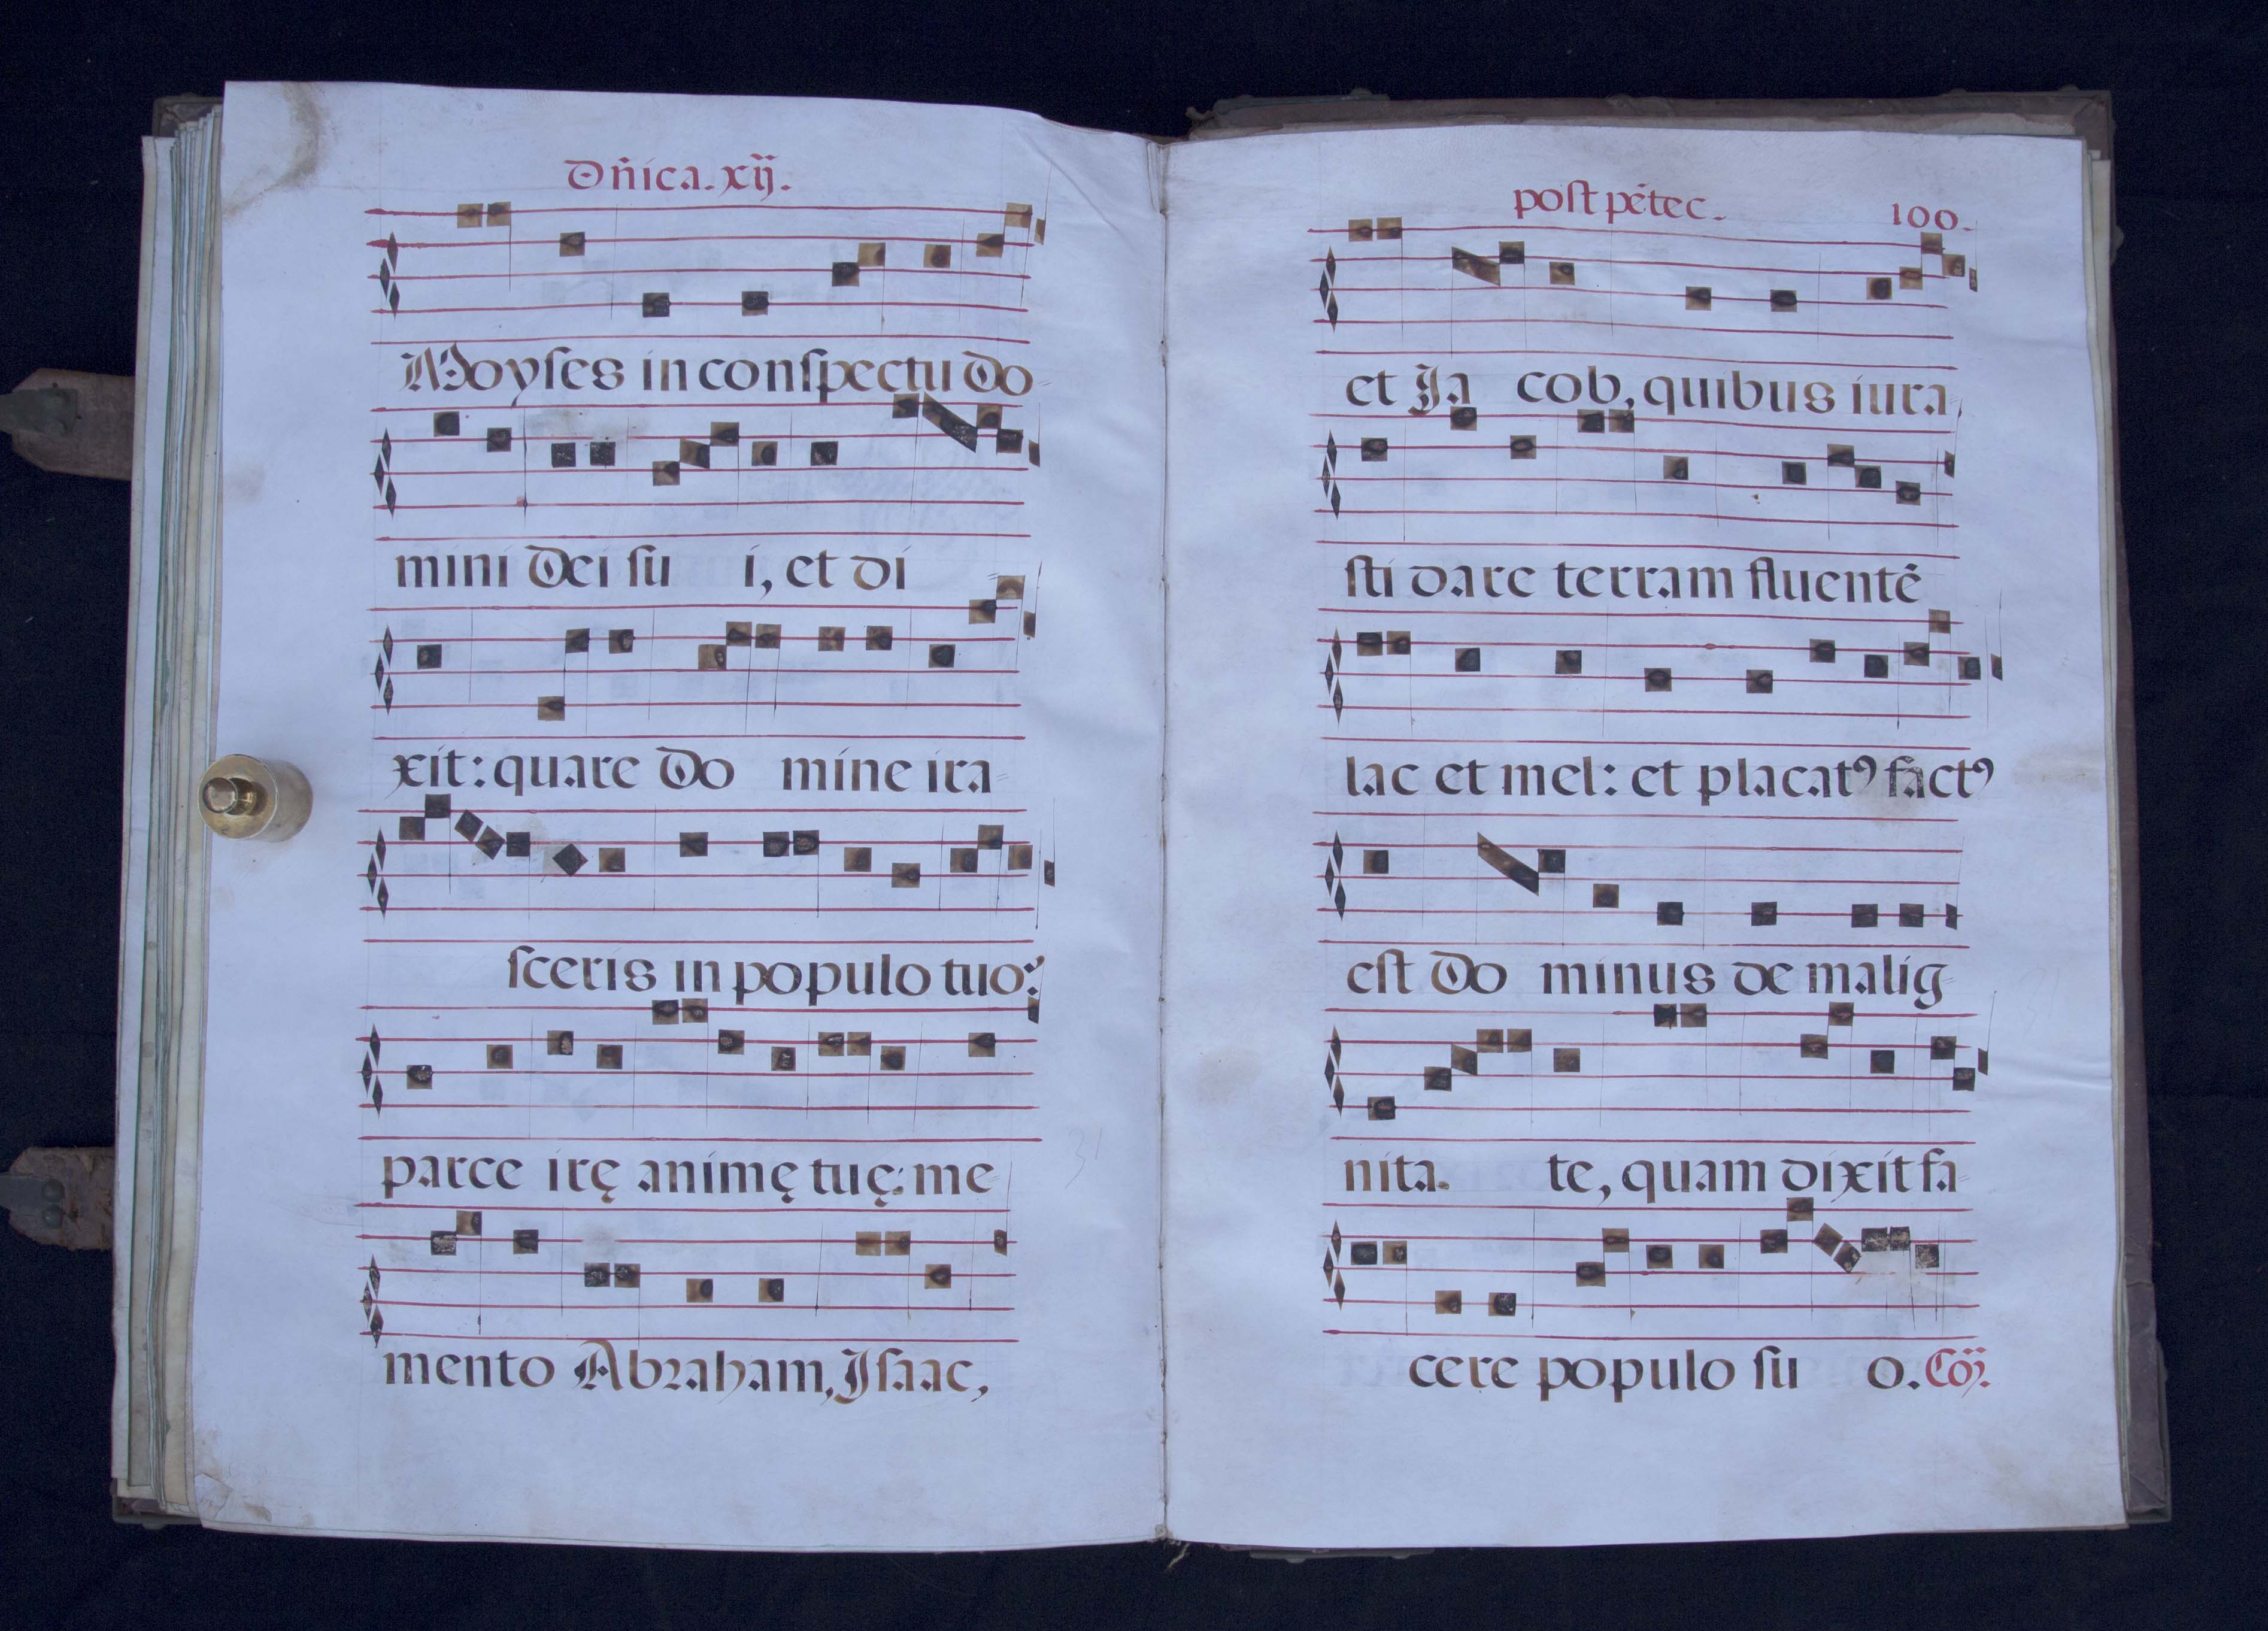 Dñica. xij.
Moyſes in conſpectu Do=
mini Dei ſu i, et di
xit: quare Do mine ira=
ſceris in populo tuo?
parce irę animę tuę: me=
mento Abraham, Iſaac,
poſt pẽtec. 100.
et Ja cob, quibus iura,
ſti dare terram fluentẽ
lac et mel: et placatꝰ factꝰ
eſt Do minus de malig=
nita. te, quam dixit fa=
cere populo ſu o. Cõ.